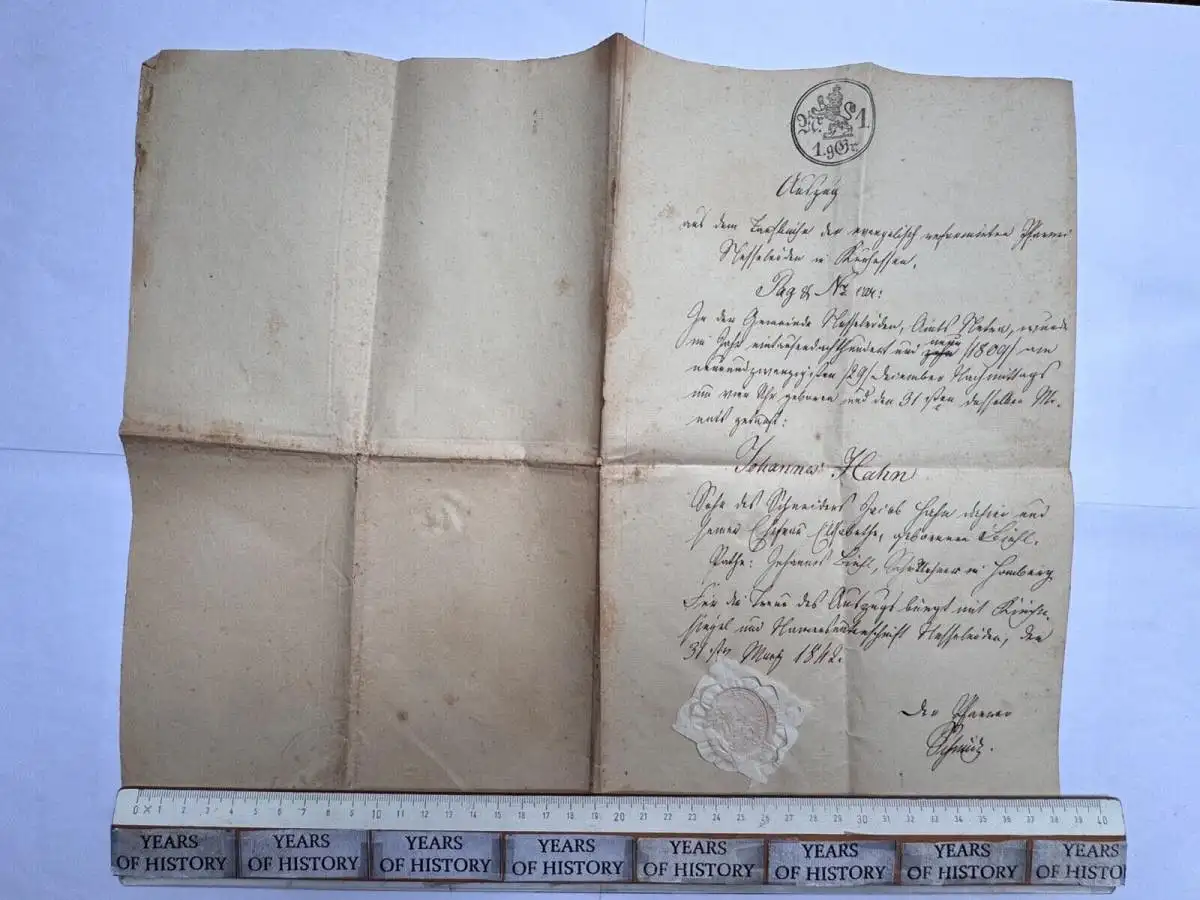 Nr. 1.
1. gGr.
Auszug
aus dem Taufbuche der evangelisch reformirten Pfarrei
Nesselröden in Kurhessen.
Pag & Nr.
In der Gemeinde Nesselröden, Amts Netra, wurde
im Jahr eintausendachthundert und zehn neun /1809/ am
neunundzwanzigsten /29/ December Nachmittags
um vier Uhr geboren und den 31sten desselben Mo-
nats getauft:
Johannes Hahn
Sohn des Schneiders Jacob Hahn dahier und
seiner Ehefrau Elisabethe, geborenen
Pathe: Johannes Schullehrer in Homberg
Für die Treue des Auszugs bürgt mit Kirchen-
siegel und Namensunterschrift Nesselröden, den
31sten März 1842.
Der Pfarrer
0 1 2 3 4 5 6 7 8 9 10 11 12 13 14 15 16 17 18 19 20 21 22 23 24 25 26 27 28 29 30 31 32 33 34 35 36 37 38 39 40
YEARS OF HISTORY
YEARS OF HISTORY
YEARS OF HISTORY
YEARS OF HISTORY
YEARS OF HISTORY
YEARS OF HISTORY
YEARS OF HISTORY
YEARS OF HISTO